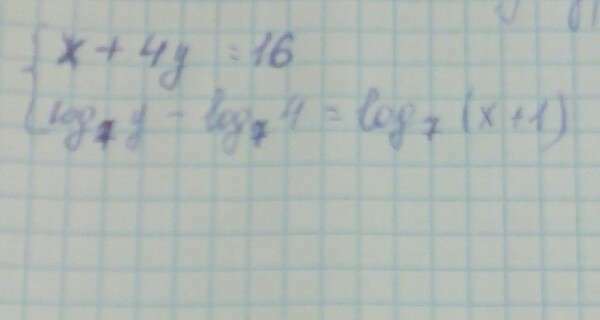 x + 4y = 16
log₇ y - log₇ 4 = log₇ (x+1)